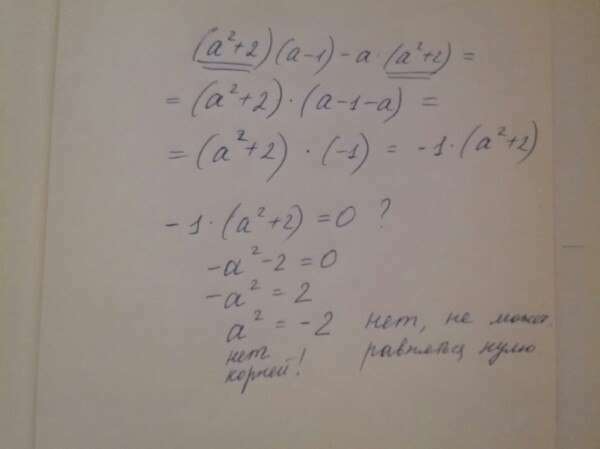 (a²+2)(a-1)-a·(a²+2)=
=(a²+2)·(a-1-a)=
=(a²+2)·(-1)=-1·(a²+2)
-1·(a²+2)=0 ?
-a²-2=0
-a²=2
a²=-2 нет, не может
нет равняться нулю
корней!